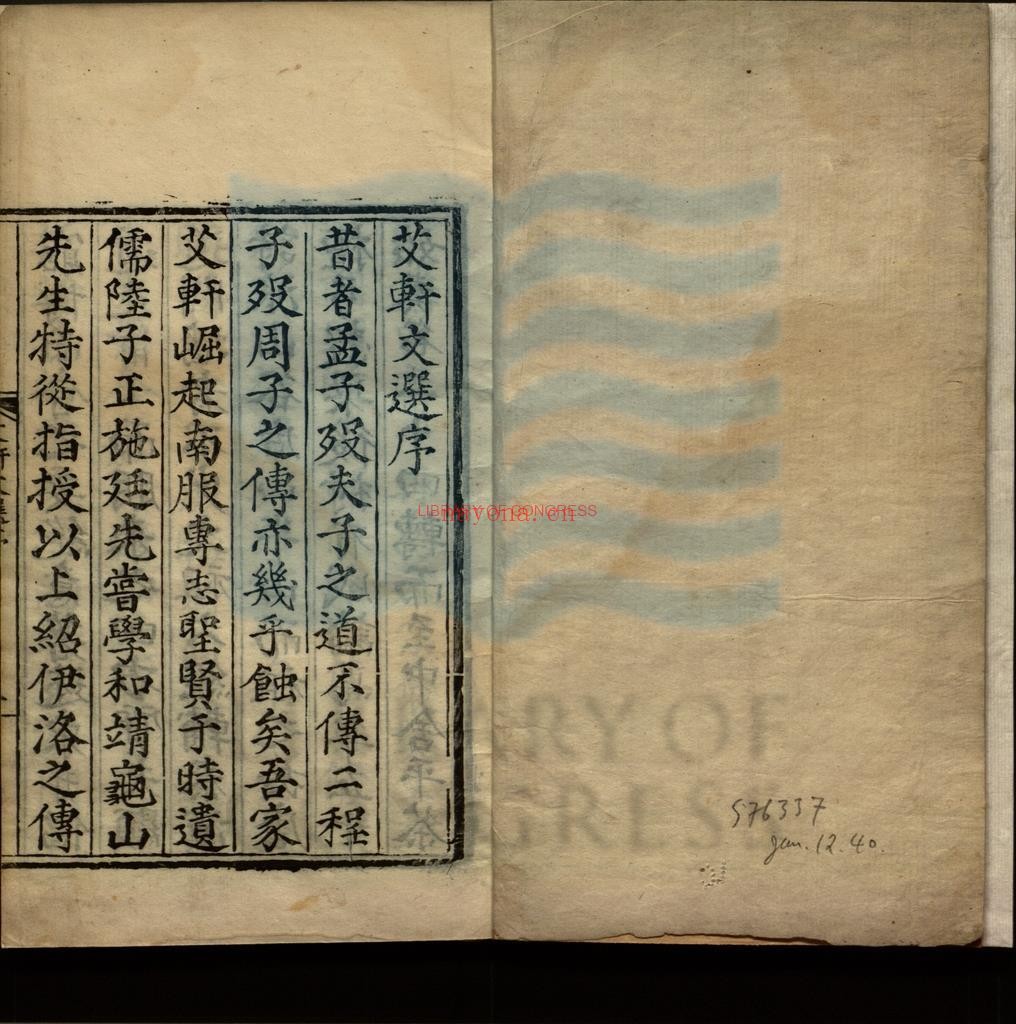 艾軒文選序
昔者孟子殁夫子之道不傳二程
子殁周子之傳亦幾乎蝕矣吾家
艾軒崛起南服專志聖賢于時遺
儒陸子正施廷先嘗學和靖龜山
先生特從指授以上紹伊洛之傳
LIBRARY OF CONGRESS
576337
Jan. 12. 40.